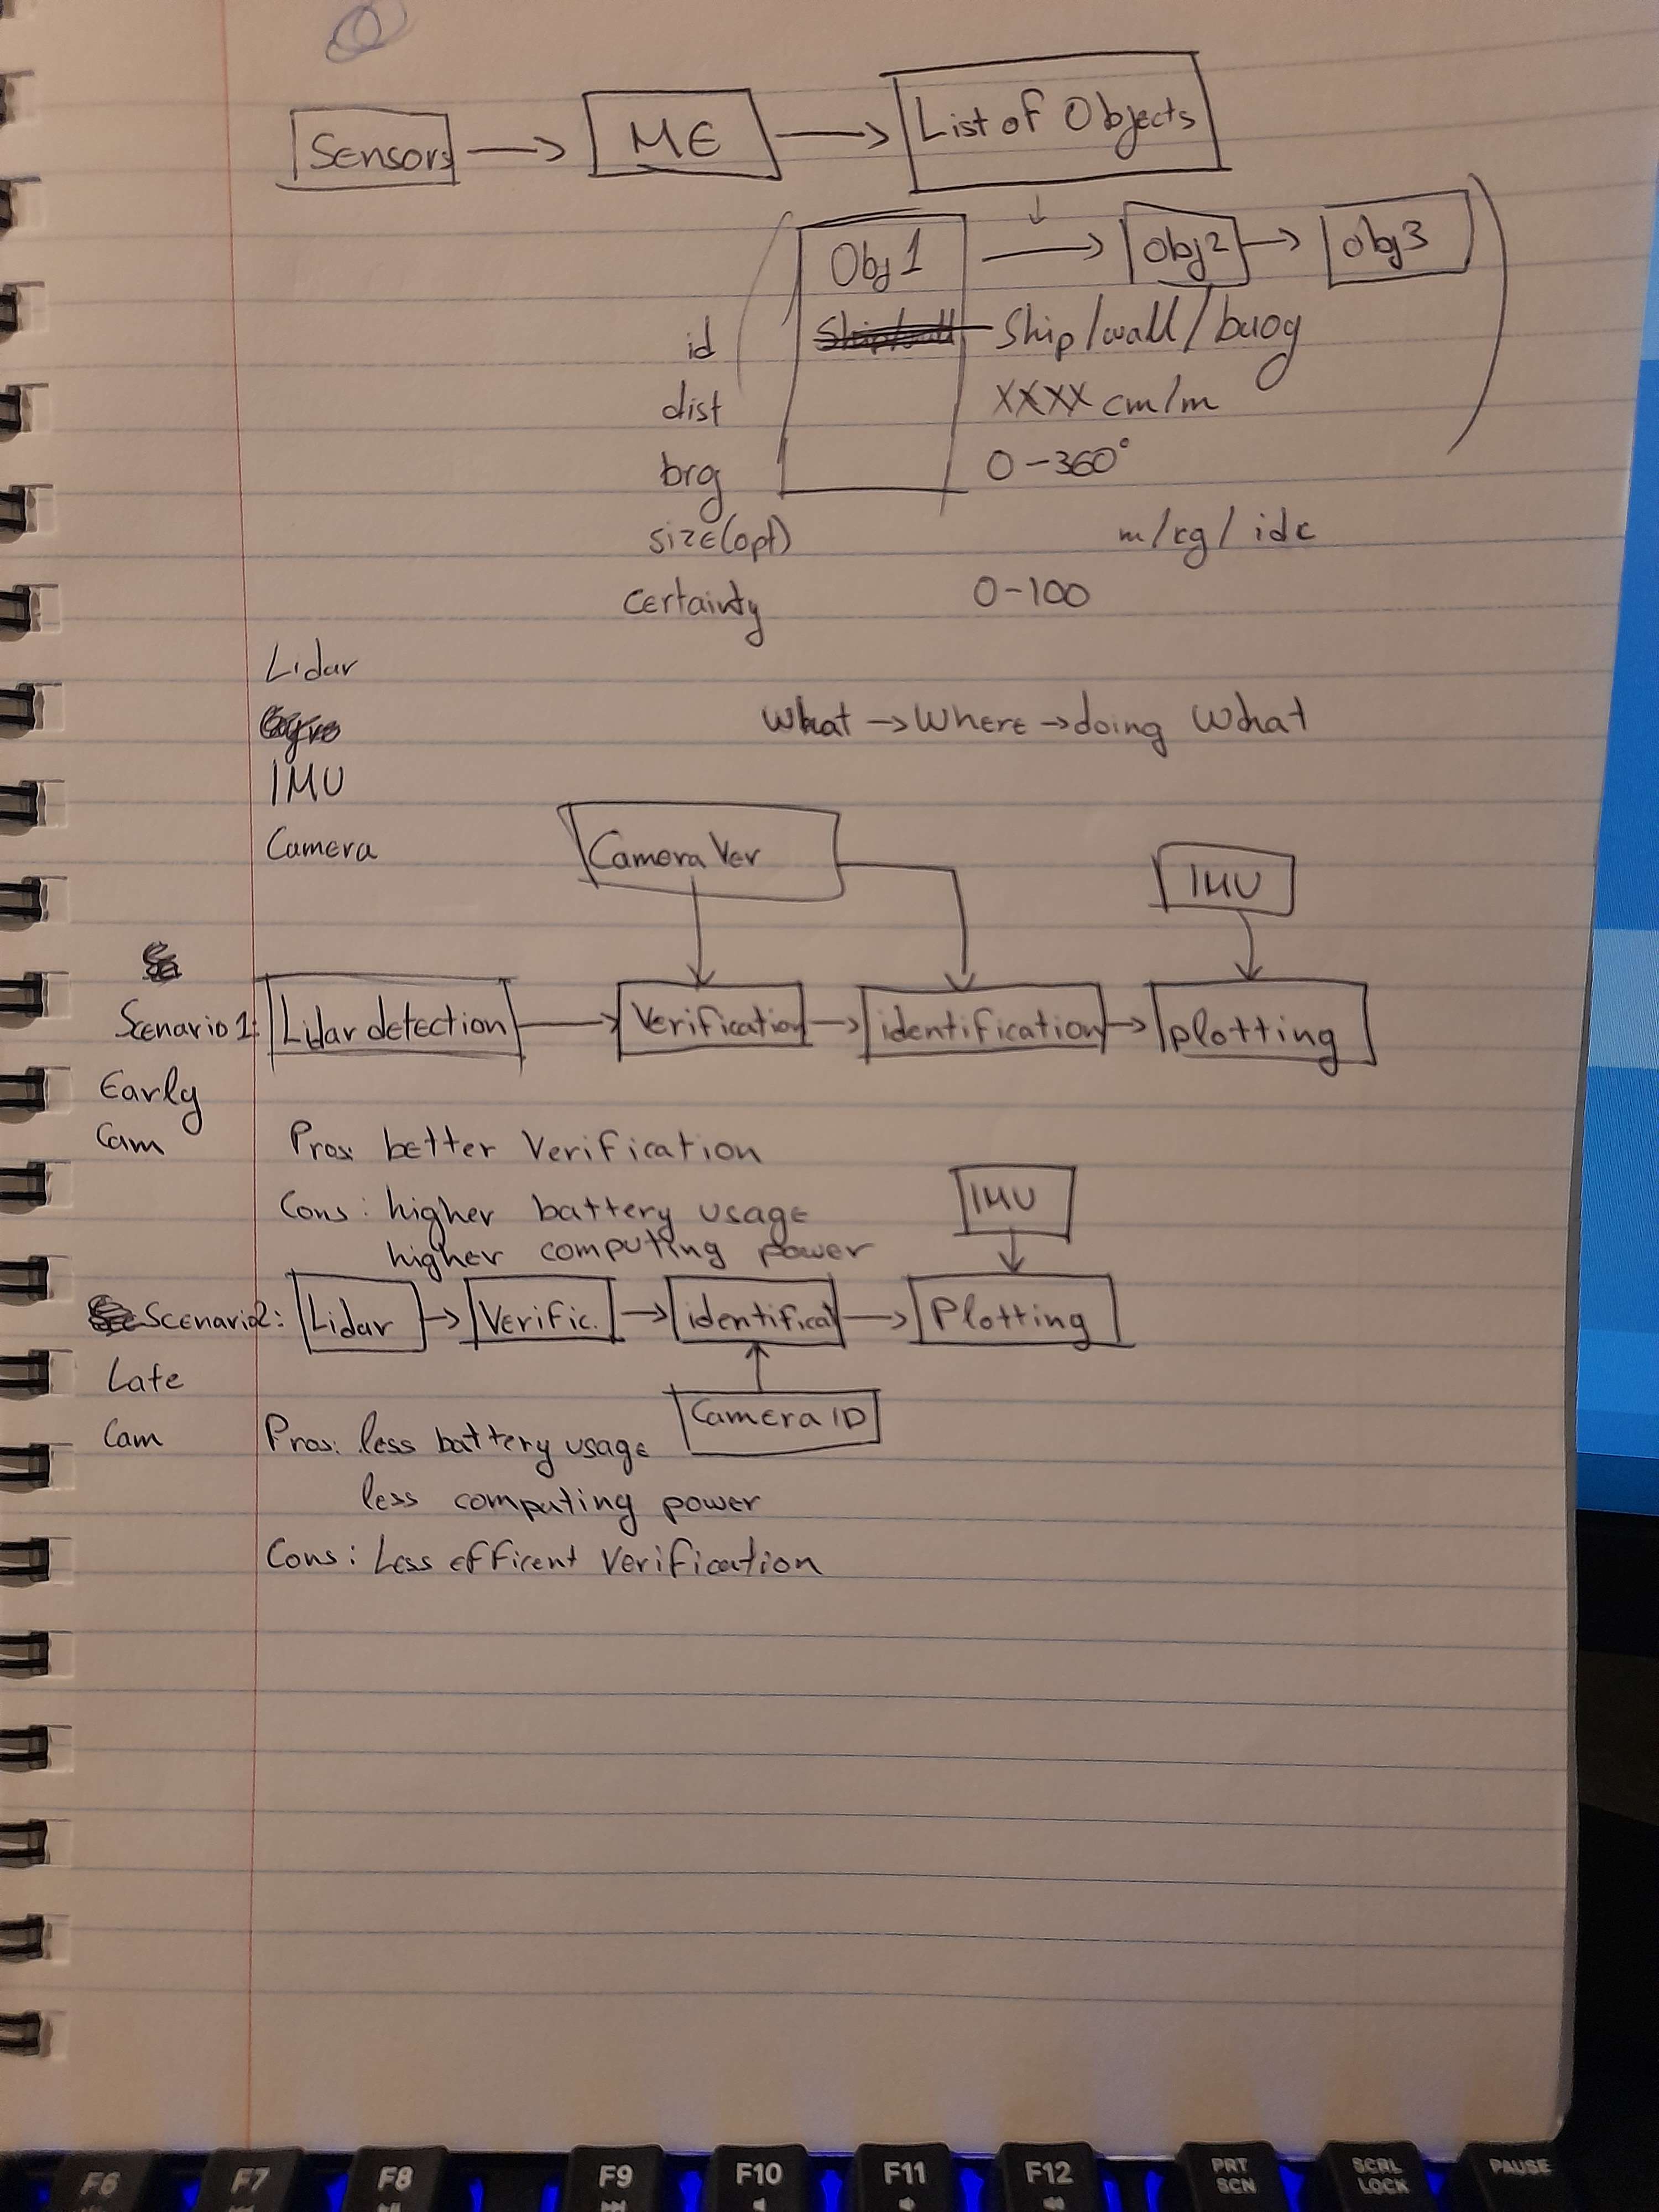 Sensors → ME → List of Objects
Obj 1 → Obj2 → Obj3
id Ship/wall/buoy
dist XXXX cm/m
brg 0-360°
size(opt) m/kg/idc
certainty 0-100
Lidar
What → Where → doing What
IMU
Camera
Camera Ver
IMU
Scenario 1: Lidar detection → Verification → identification → plotting
Early
Cam
Pros: better Verification
Cons: higher battery usage
higher computing power
IMU
Scenario2: Lidar → Verific. → identificat → Plotting
Late
Cam
Camera ID
Pros: less battery usage
less computing power
Cons: Less efficent Verification
F6 F7 F8 F9 F10 F11 F12 PRT SCN SCRL LOCK PAUSE